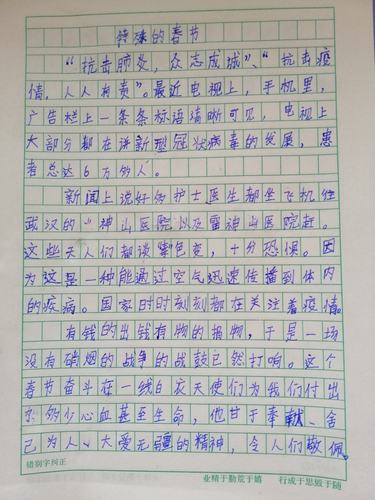 特殊的春节
“抗击肺炎，众志成城”、“抗击疫
情，人人有责”。最近电视上，手机里，
广告栏上一条条标语清晰可见，电视上
大部分都在讲新型冠状病毒的发展，患
者总达6万多人。
新闻上说好多护士医生都坐飞机往
武汉的“神山医院以及雷神山医院赶。
这些天人们都谈“色变，十分恐惧。因
为这是一种能通过空气迅速传播到体内
的疾病。国家时时刻刻都在关注着疫情。
有钱的出钱有物的捐物，于是一场
没有硝烟的战争的战鼓已然打响。这个
春节奋斗在一线白衣天使们为我们付出
多少心血甚至生命，他甘于奉献、舍
己为人、大爱无疆的精神，令人们敬佩。
错别字纠正
业精于勤荒于嬉 行成于思毁于随